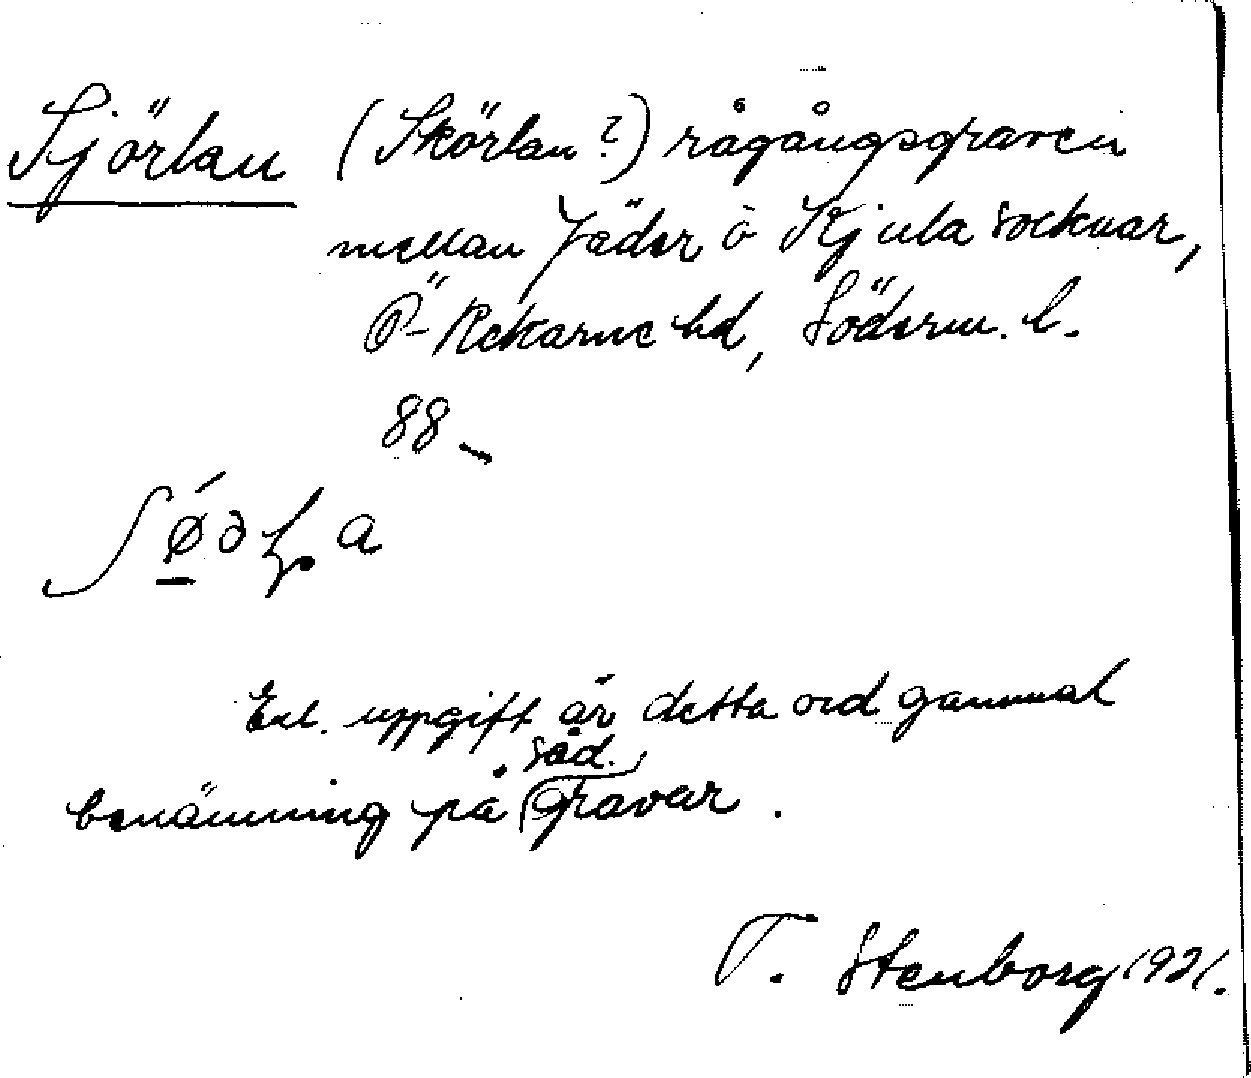 Sjörlan (Skörlan?) rågångsgraven
mellan Jäder o Kjula socknar,
Ö-Rekarne hd, Söderm. l.
88
Enl. uppgift är detta ord gammal
benämning på såd. gravar.
T. Stenborg 1921.